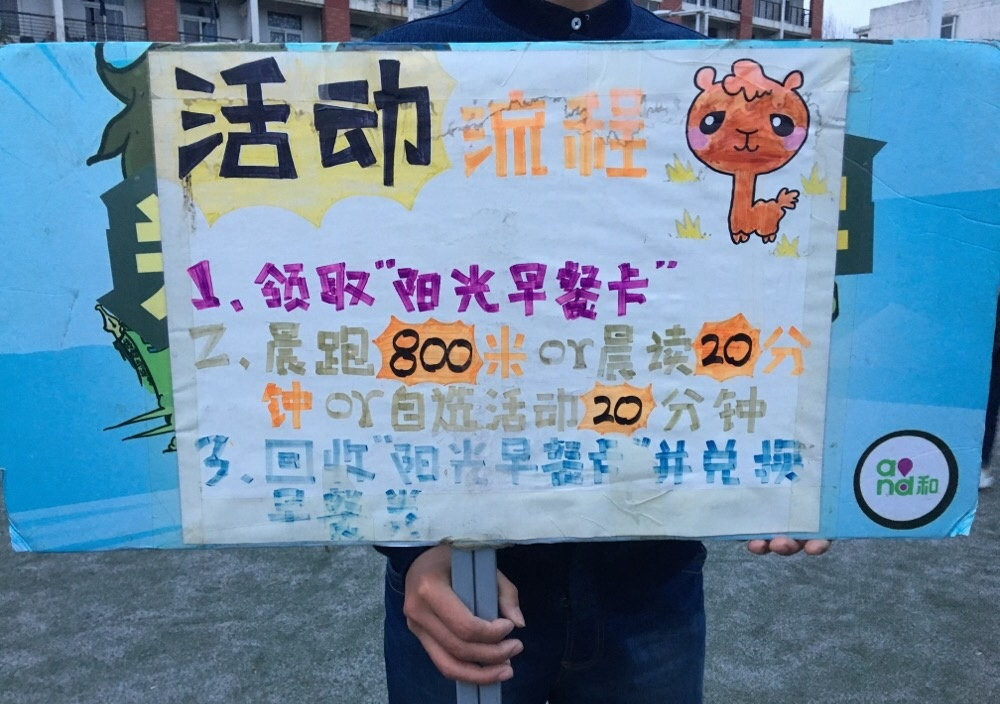 活动 流程
1、领取"阳光早餐卡"
2、晨跑800米or晨读20分
钟or自选活动20分钟
3、回收"阳光早餐卡"并兑换
早餐券
and和